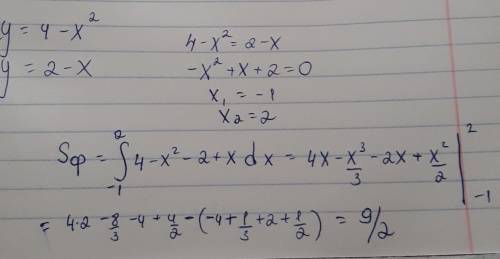 y = 4 - x²
y = 2 - x
4 - x² = 2 - x
-x² + x + 2 = 0
x₁ = -1
x₂ = 2
Sф = ∫₋₁² 4 - x² - 2 + x dx = 4x - x³/3 - 2x + x²/2 |₋₁²
= 4·2 - 8/3 - 4 + 4/2 - (-4 + 1/3 + 2 + 1/2) = 9/2